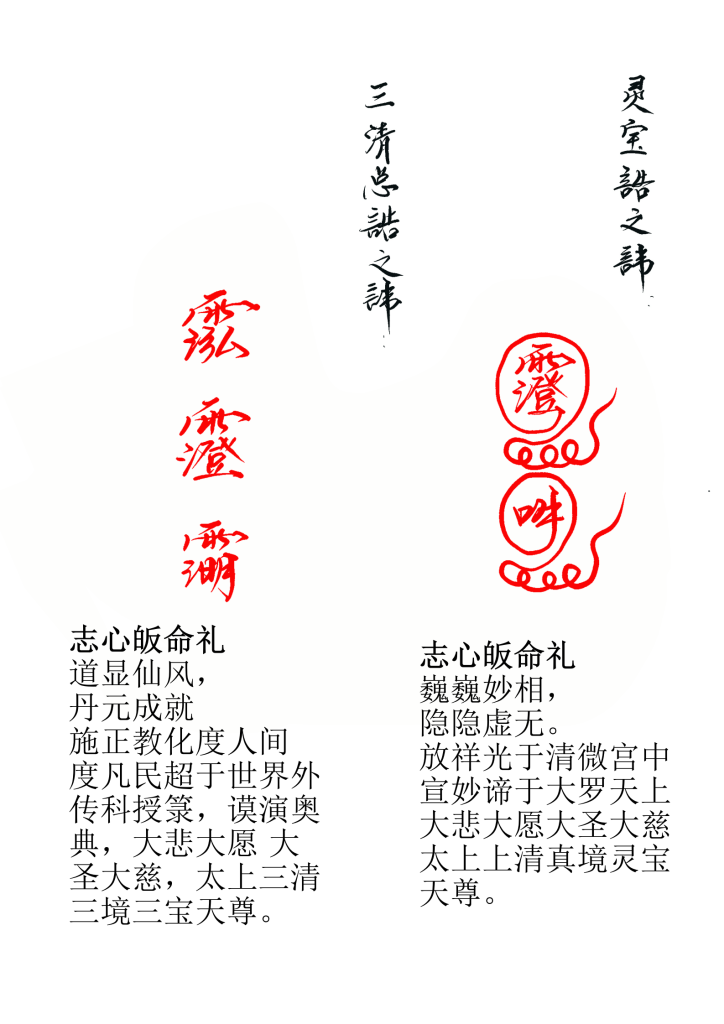 灵宝誥之諱
三清总誥之諱
志心皈命礼
道显仙风，
丹元成就
施正教化度人间
度凡民超于世界外
传科授箓，谟演奥
典，大悲大愿 大
圣大慈，太上三清
三境三宝天尊。
志心皈命礼
巍巍妙相，
隐隐虚无。
放祥光于清微宫中
宣妙谛于大罗天上
大悲大愿大圣大慈
太上上清真境灵宝
天尊。